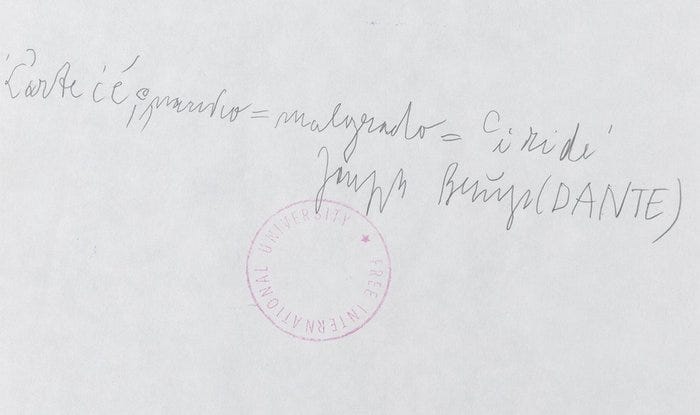 L'arte quando = malgrado =
Joseph Beuys (DANTE)
FREE INTERNATIONAL UNIVERSITY